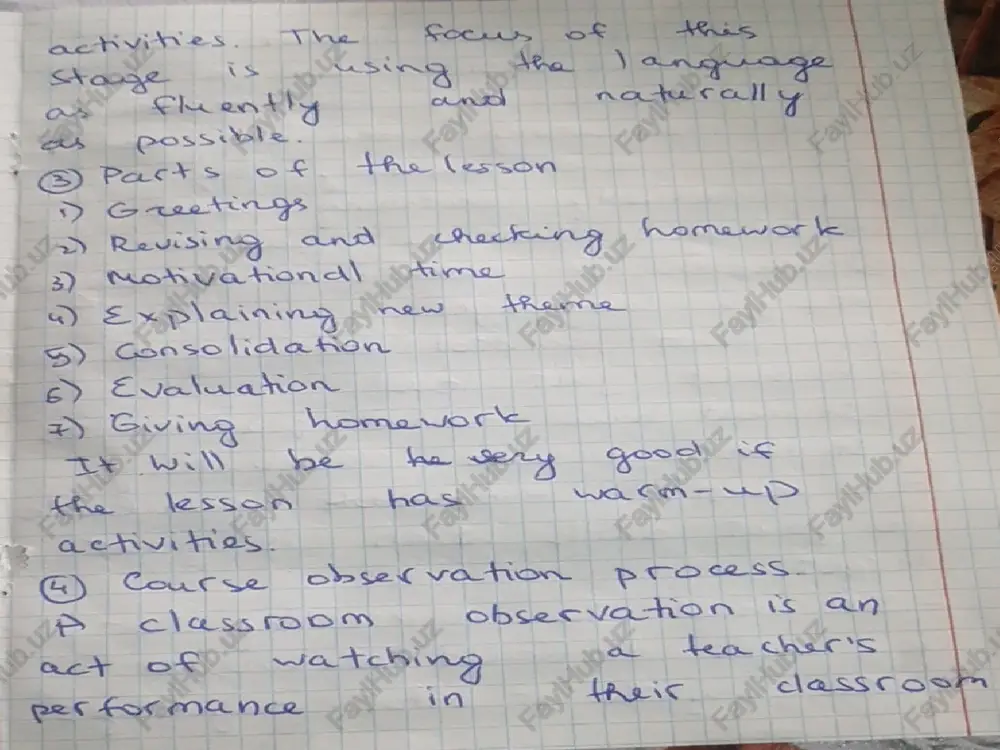 activities. The focus of this
stage is using the language
as fluently and naturally
as possible.
③ Parts of the lesson
1) Greetings
2) Revising and checking homework
3) Motivational time
4) Explaining new theme
5) Consolidation
6) Evaluation
7) Giving homework
It will be very good if
the lesson has warm-up
activities.
④ Course observation process.
A classroom observation is an
act of watching a teacher's
performance in their classroom
FaylHub.uz